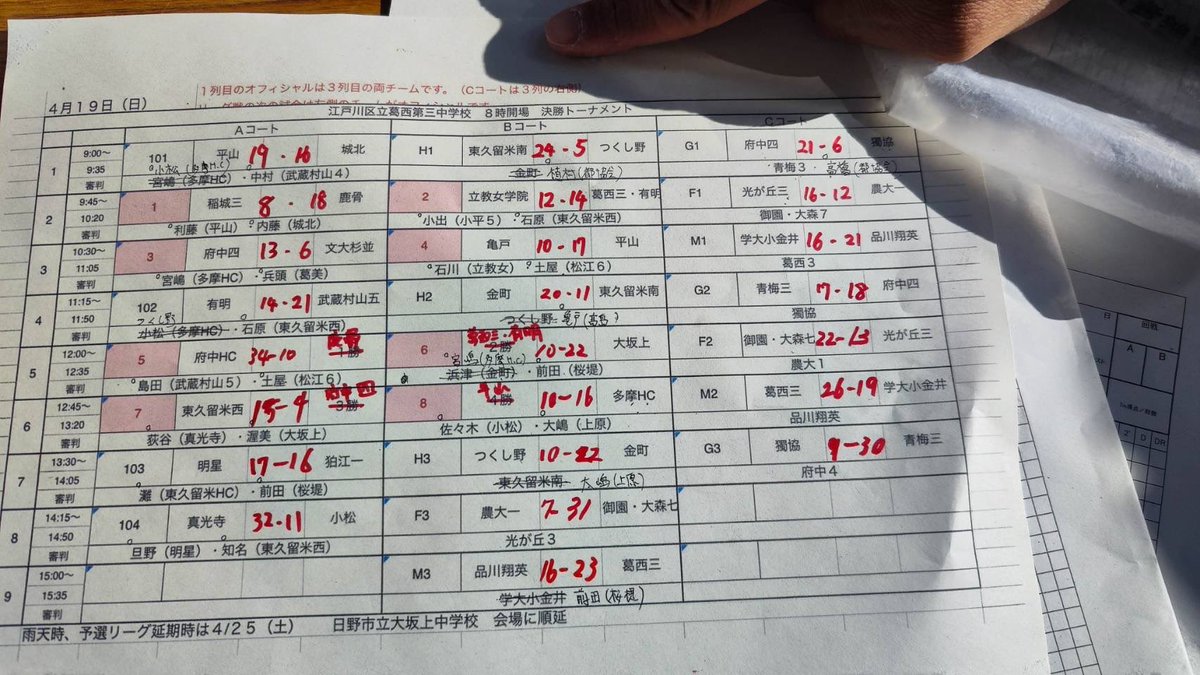 1列目のオフィシャルは3列目の両チームです。（Cコートは3列の右側）
4月19日（日）
江戸川区立葛西第三中学校 8時開場 決勝トーナメント
Aコート Bコート Cコート
1 9:00〜 101 平山 19-16 城北 H1 東久留米南 24-5 つくし野 G1 府中四 21-6 獨協
9:35 小松(多摩H.C)
審判 宮嶋（多摩HC）・中村（武蔵村山4） 金町 青梅3・
2 9:45〜 1 稲城三 8-18 鹿骨 2 立教女学院 12-14 葛西三・有明 F1 光が丘三 16-12 農大一
10:20
審判 利藤（平山）・内藤（城北） 小出（小平5）・石原（東久留米西） 御園・大森7
3 10:30〜 3 府中四 13-6 文大杉並 4 亀戸 10-17 平山 M1 学大小金井 16-21 品川翔英
11:05
審判 宮嶋（多摩HC）・兵頭（葛美） 石川（立教女）・土屋（松江6） 葛西3
4 11:15〜 102 有明 14-21 武蔵村山五 H2 金町 20-11 東久留米南 G2 青梅三 7-18 府中四
11:50 つくし野
審判 小松（多摩HC）・石原（東久留米西） つくし野 獨協
5 12:00〜 5 府中HC 34-10 鹿骨 1勝 6 葛西三・有明 2勝 10-22 大坂上 F2 御園・大森七 22-13 光が丘三
12:35 宮嶋(多摩H.C)
審判 島田（武蔵村山5）・土屋（松江6） 浜津（金町）・前田（桜堤） 農大1
6 12:45〜 7 東久留米西 15-4 府中四 3勝 8 平山 4勝 10-16 多摩HC M2 葛西三 26-19 学大小金井
13:20
審判 荻谷（真光寺）・渥美（大坂上） 佐々木（小松）・大嶋（上原） 品川翔英
7 13:30〜 103 明星 17-16 狛江一 H3 つくし野 10-22 金町 G3 獨協 9-30 青梅三
14:05
審判 灘（東久留米HC）・前田（桜堤） 東久留米南 大嶋(上原) 府中4
8 14:15〜 104 真光寺 32-11 小松 F3 農大一 7-31 御園・大森七
14:50
審判 旦野（明星）・知名（東久留米西） 光が丘3
9 15:00〜 M3 品川翔英 16-23 葛西三
15:35
審判 学大小金井 前田(桜堤)
雨天時、予選リーグ延期時は4/25（土） 日野市立大坂上中学校 会場に順延
日 回戦
A B
2' D DR